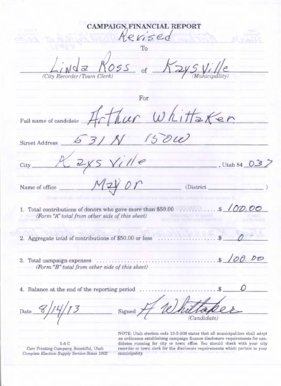 CAMPAIGN FINANCIAL REPORT
Revised
To
Linda Ross of Kaysville
(City Recorder/Town Clerk) (Municipality)
For
Full name of candidate Arthur Whittaker
Street Address 631 N 150 W
City Kaysville , Utah 84 037
Name of office Mayor (District )
1. Total contributions of donors who gave more than $50.00 $ 100.00
(Form "A" total from other side of this sheet)
2. Aggregate total of contributions of $50.00 or less $ 0
3. Total campaign expenses $ 100.00
(Form "B" total from other side of this sheet)
4. Balance at the end of the reporting period $ 0
Date 8/14/13 Signed A Whittaker
(Candidate)
NOTE: Utah election code 10-3-208 states that all municipalities shall adopt
an ordinance establishing campaign finance disclosure requirements for can-
didates running for city or town office. You should check with your city
recorder or town clerk for the disclosure requirements which pertain to your
municipality.
Carr Printing Company, Bountiful, Utah
Complete Election Supply Service Since 1902